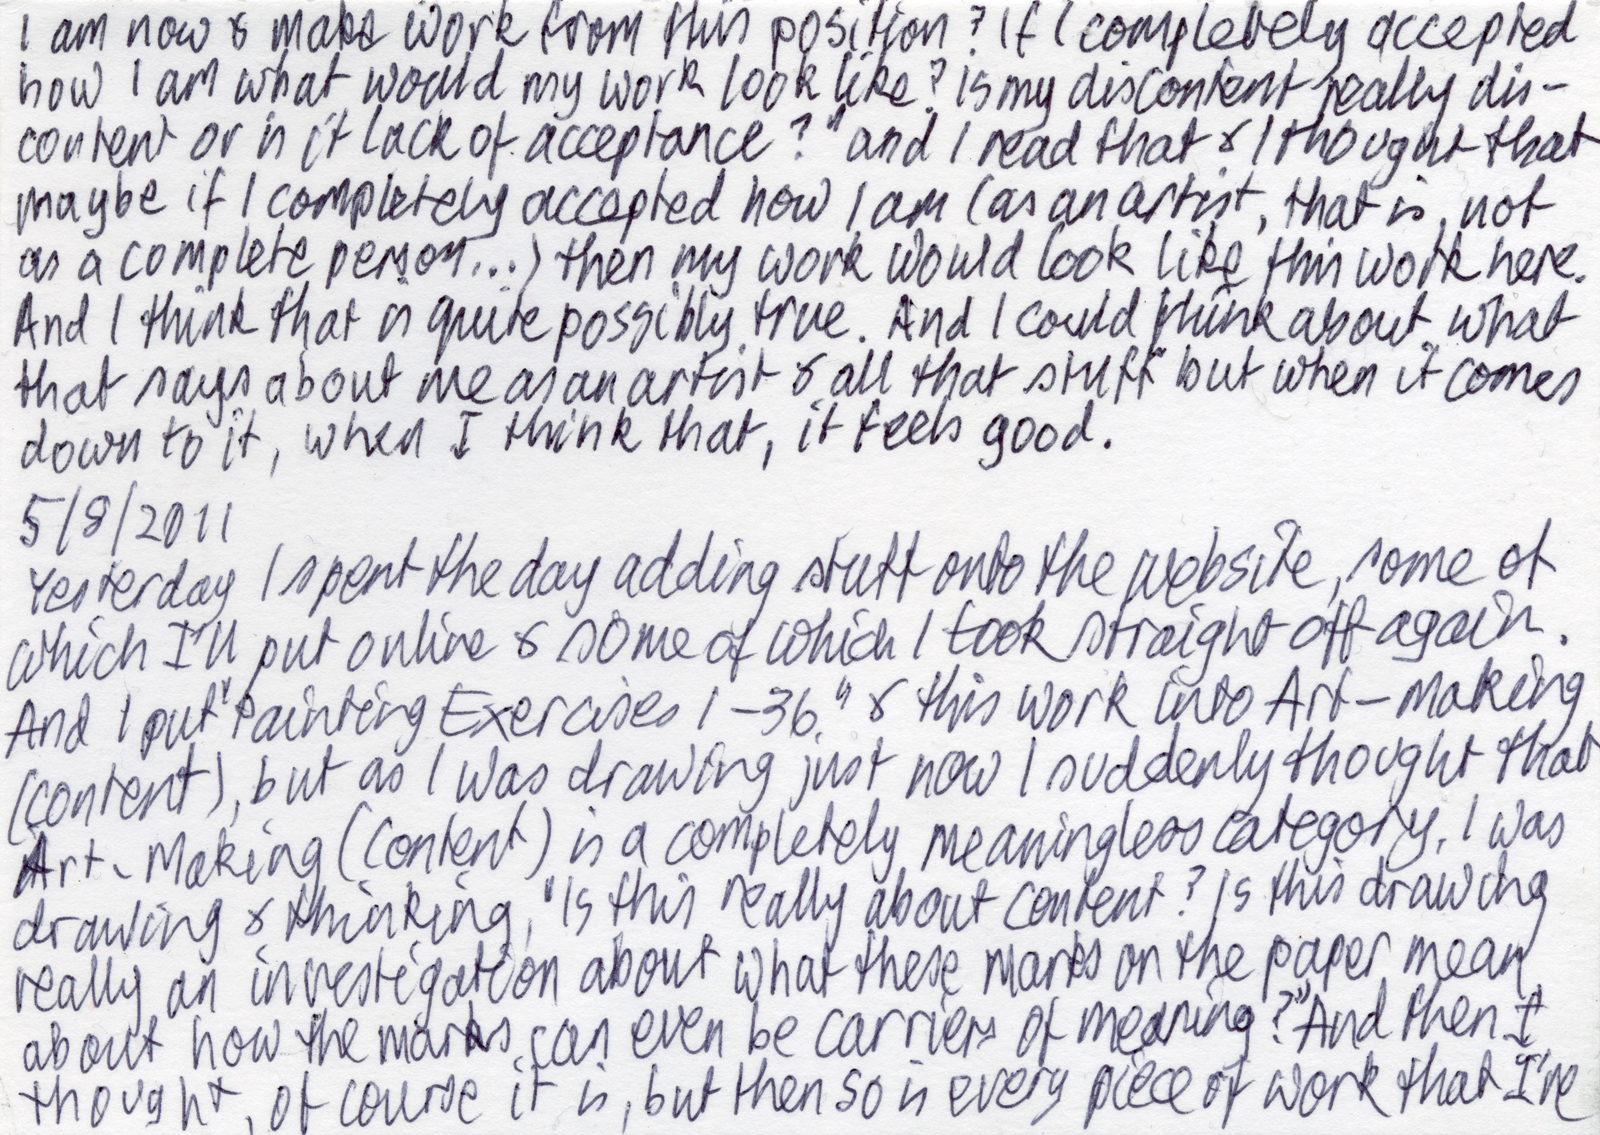 I am now & make work from this position? If I completely accepted
how I am what would my work look like? Is my discontent really dis-
content or is it lack of acceptance?" and I read that & I thought that
maybe if I completely accepted how I am (as an artist, that is, not
as a complete person...) then my work would look like this work here.
And I think that is quite possibly true. And I could think about "what
that says about me as an artist & all that stuff" but when it comes
down to it, when I think that, it feels good.
5/8/2011
Yesterday I spent the day adding stuff onto the website, some of
which I'll put online & some of which I took straight off again.
And I put "Painting Exercises 1-36" & this work into Art-Making
(content), but as I was drawing just now I suddenly thought that
Art-Making (Content) is a completely meaningless category. I was
drawing & thinking, "Is this really about content? Is this drawing
really an investigation about what these marks on the paper mean
about how the marks can even be carriers of meaning?" And then I
thought, of course it is, but then so is every piece of work that I've